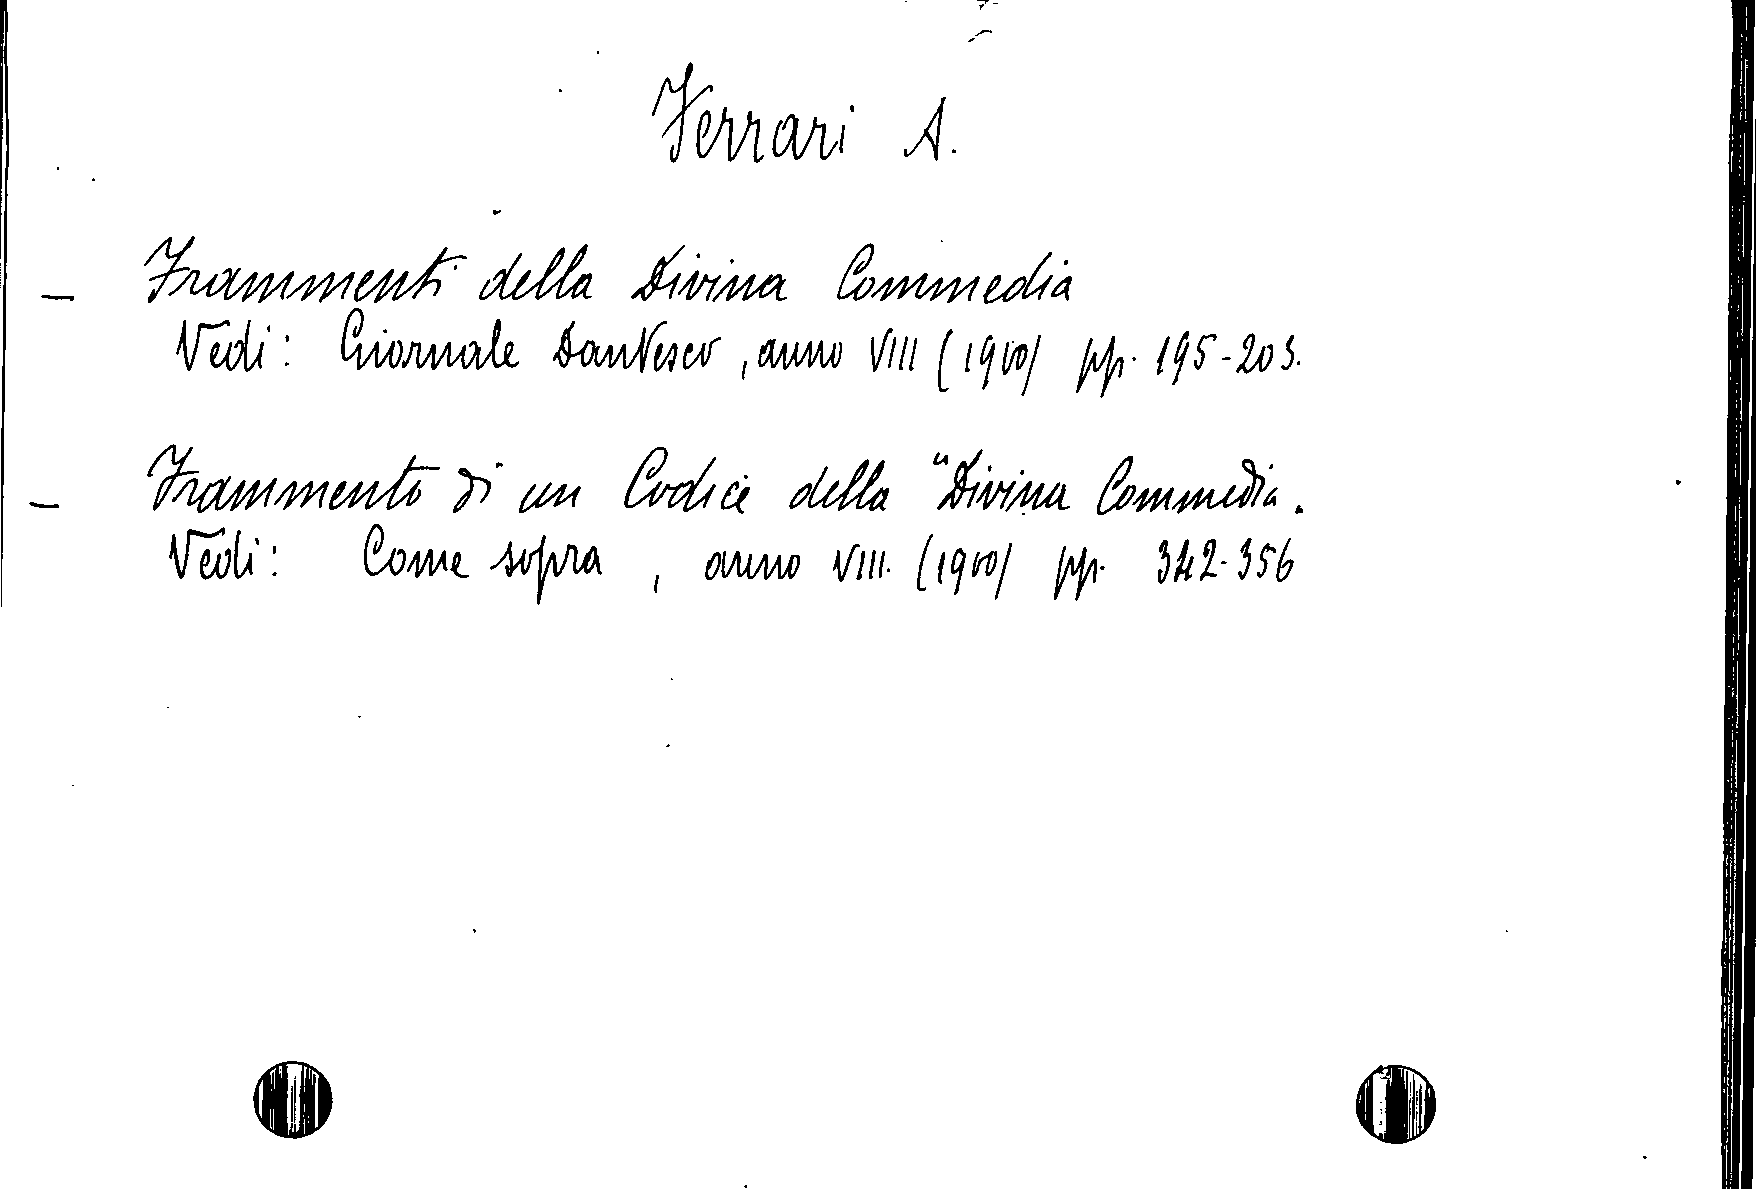 Ferrari A.
— Frammenti della Divina Commedia
Vedi: Giornale Dantesco, anno VIII (1900) pp. 195-203.
— Frammento di un Codice della "Divina Commedia.
Vedi: Come sopra, anno VIII. (1900) pp. 342-356